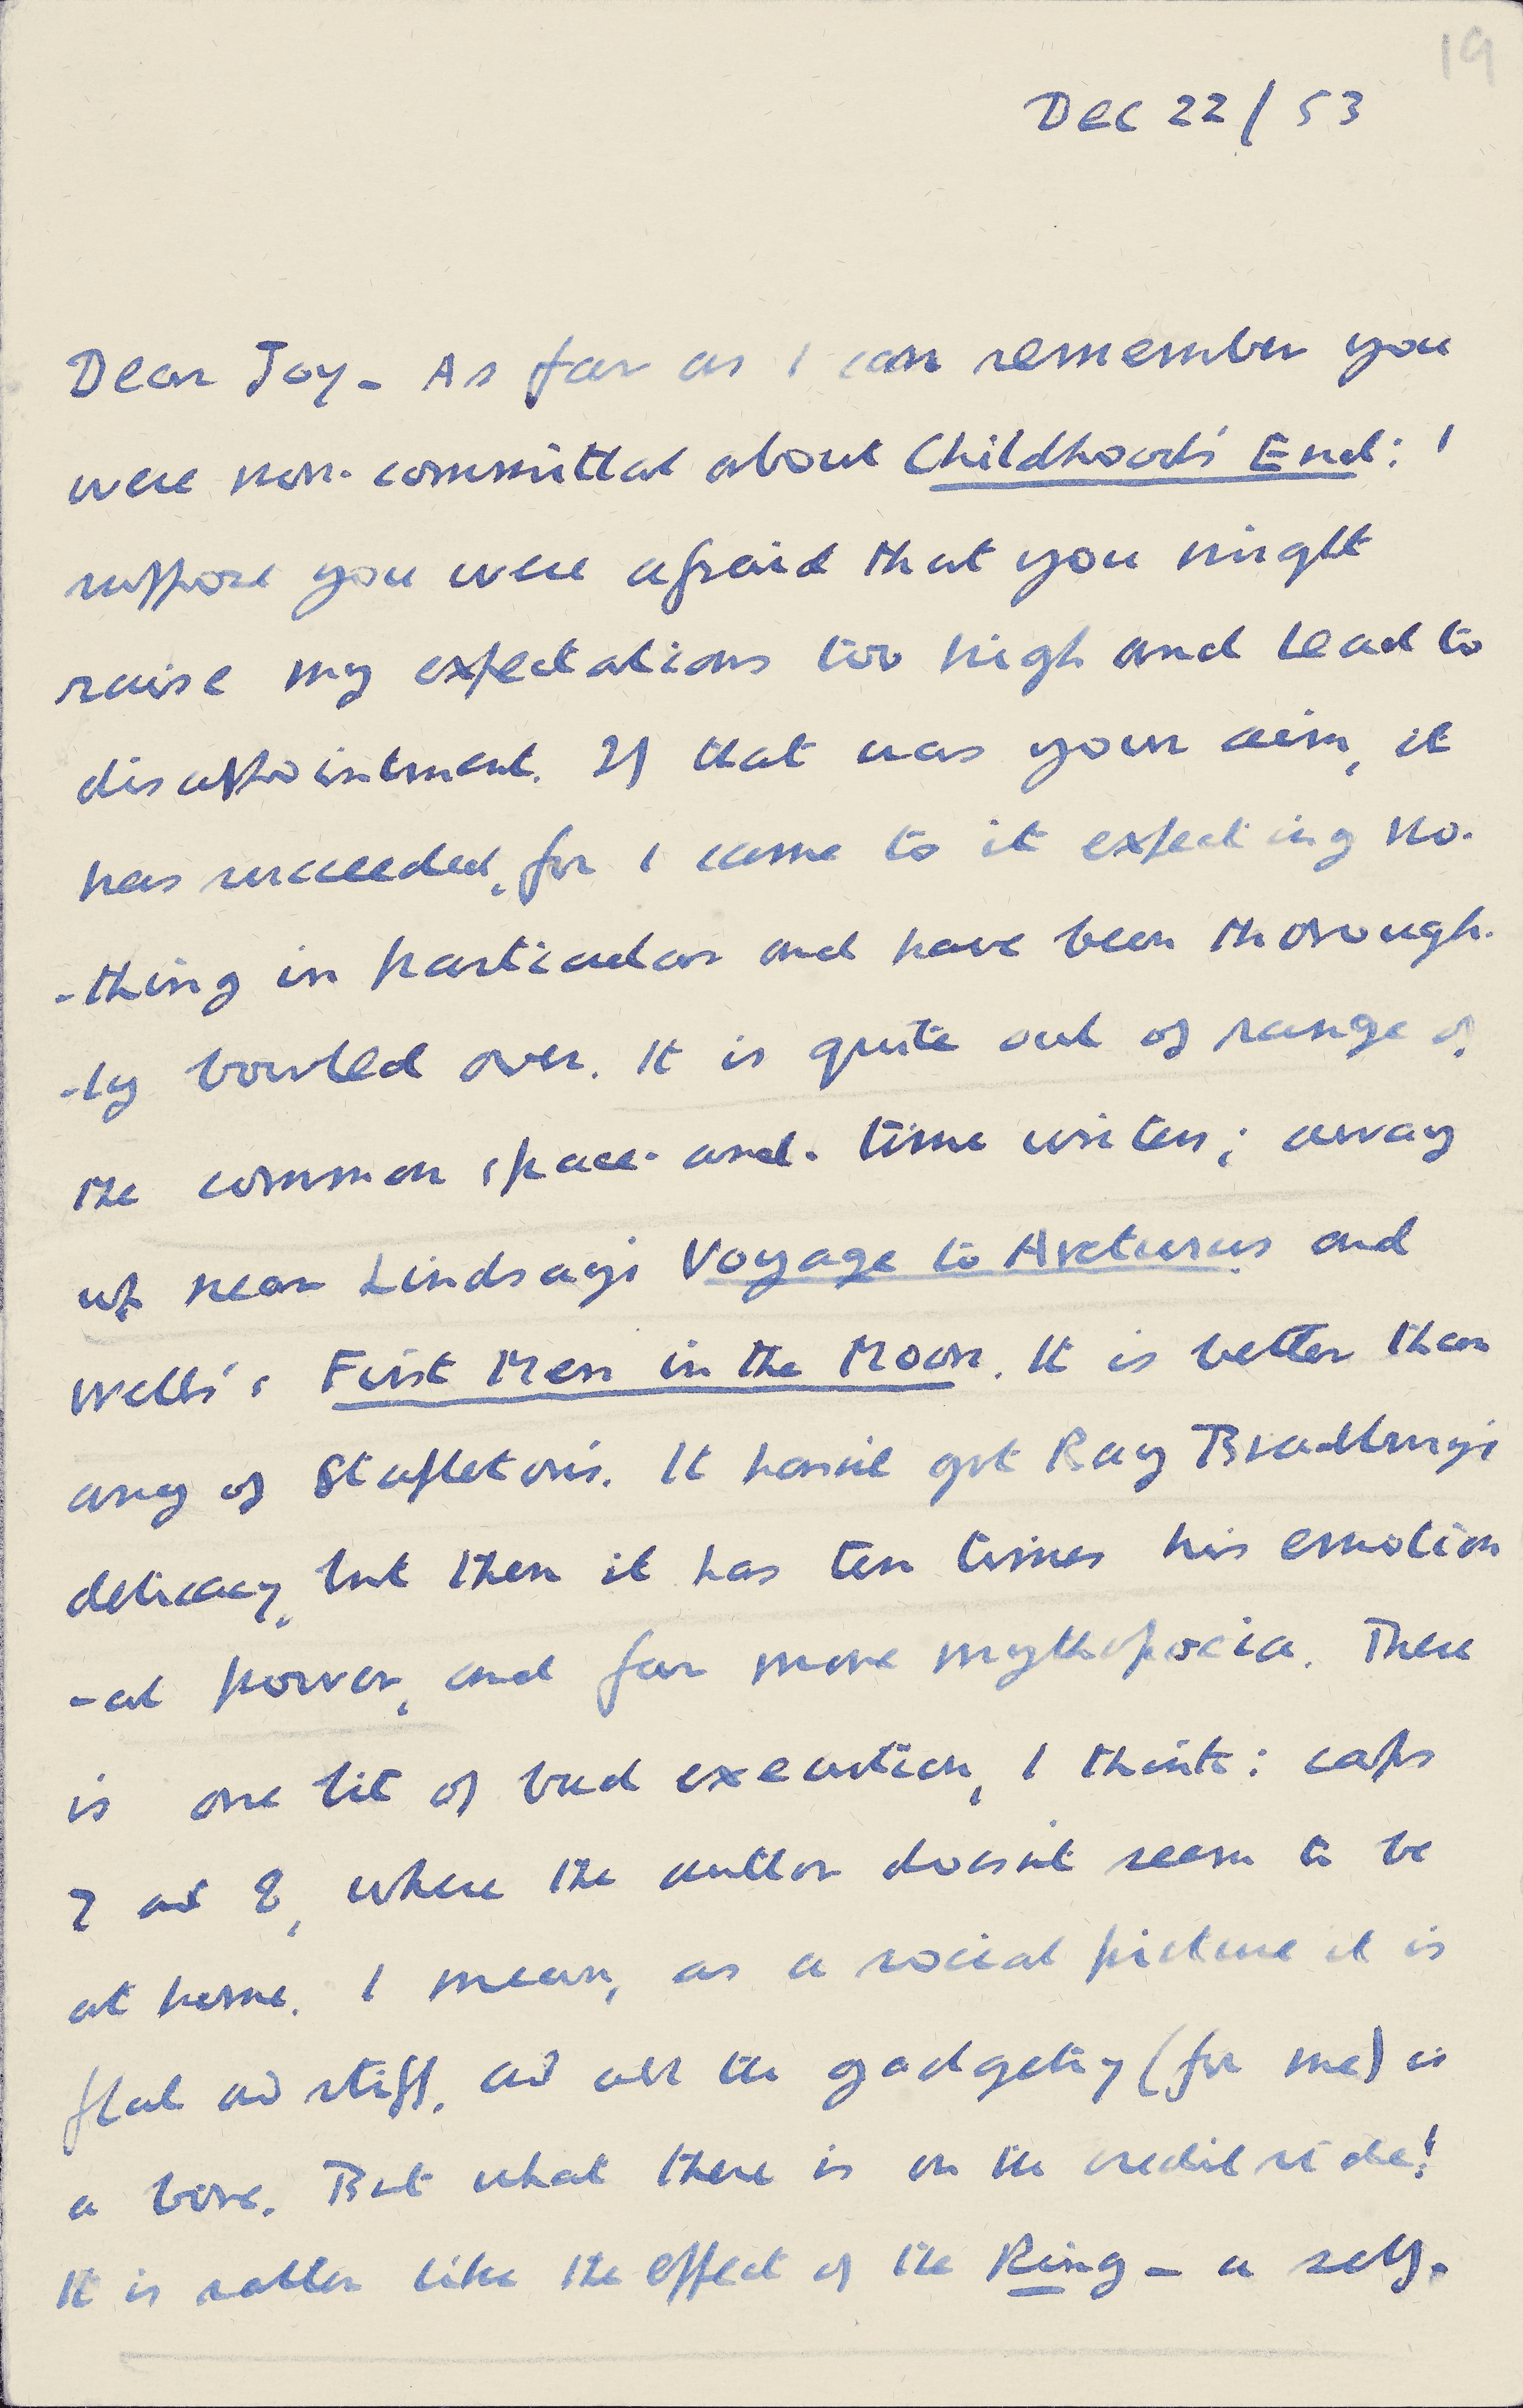 19
Dec 22/53
Dear Joy - As far as I can remember you
were non-committal about Childhood's End: I
suppose you were afraid that you might
raise my expectations too high and lead to
disappointment. If that was your aim, it
has succeeded, for I came to it expecting no-
-thing in particular and have been thorough-
-ly bowled over. It is quite out of range of
the common space-and-time writers; away
up near Lindsay's Voyage to Arcturus and
Wells's First Men in the Moon. It is better than
any of Stapleton's. It hasn't got Ray Bradbury's
delicacy, but then it has ten times his emotion
-al power, and far more mythopoeia. There
is one bit of bad execution, I think: caps
7 and 8, where the author doesn't seem to be
at home. I mean, as a social picture it is
flat and stiff, and all the gadgetry (for me) is
a bore. But what there is on the credit side!
It is rather like the effect of the Ring - a self-